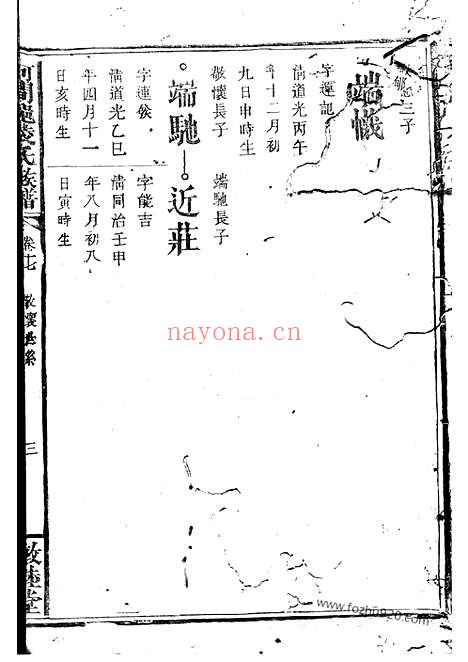 三子
端幟
字運記
清道光丙午
年十二月初
九日申時生
敬懷長子
端馳
字連俟
清道光乙巳
年四月十一
日亥時生
端馳長子
近莊
字能吉
清同治壬申
年八月初八
日寅時生
河間凌氏族譜
卷十七
敬懷世系
三
敦睦堂
nayona.cn
www.fozhu920.com